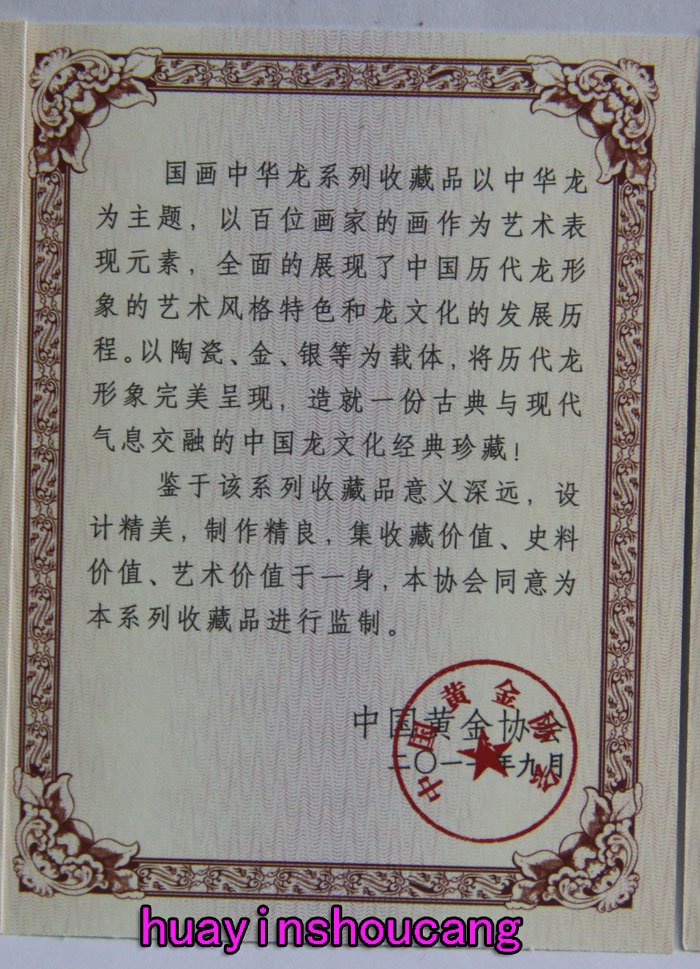 国画中华龙系列收藏品以中华龙
为主题，以百位画家的画作为艺术表
现元素，全面的展现了中国历代龙形
象的艺术风格特色和龙文化的发展历
程。以陶瓷、金、银等为载体，将历代龙
形象完美呈现，造就一份古典与现代
气息交融的中国龙文化经典珍藏！
鉴于该系列收藏品意义深远，设
计精美，制作精良，集收藏价值、史料
价值、艺术价值于一身，本协会同意为
本系列收藏品进行监制。
中国黄金协会
二〇一一年九月
中国黄金协会
huayinshoucang